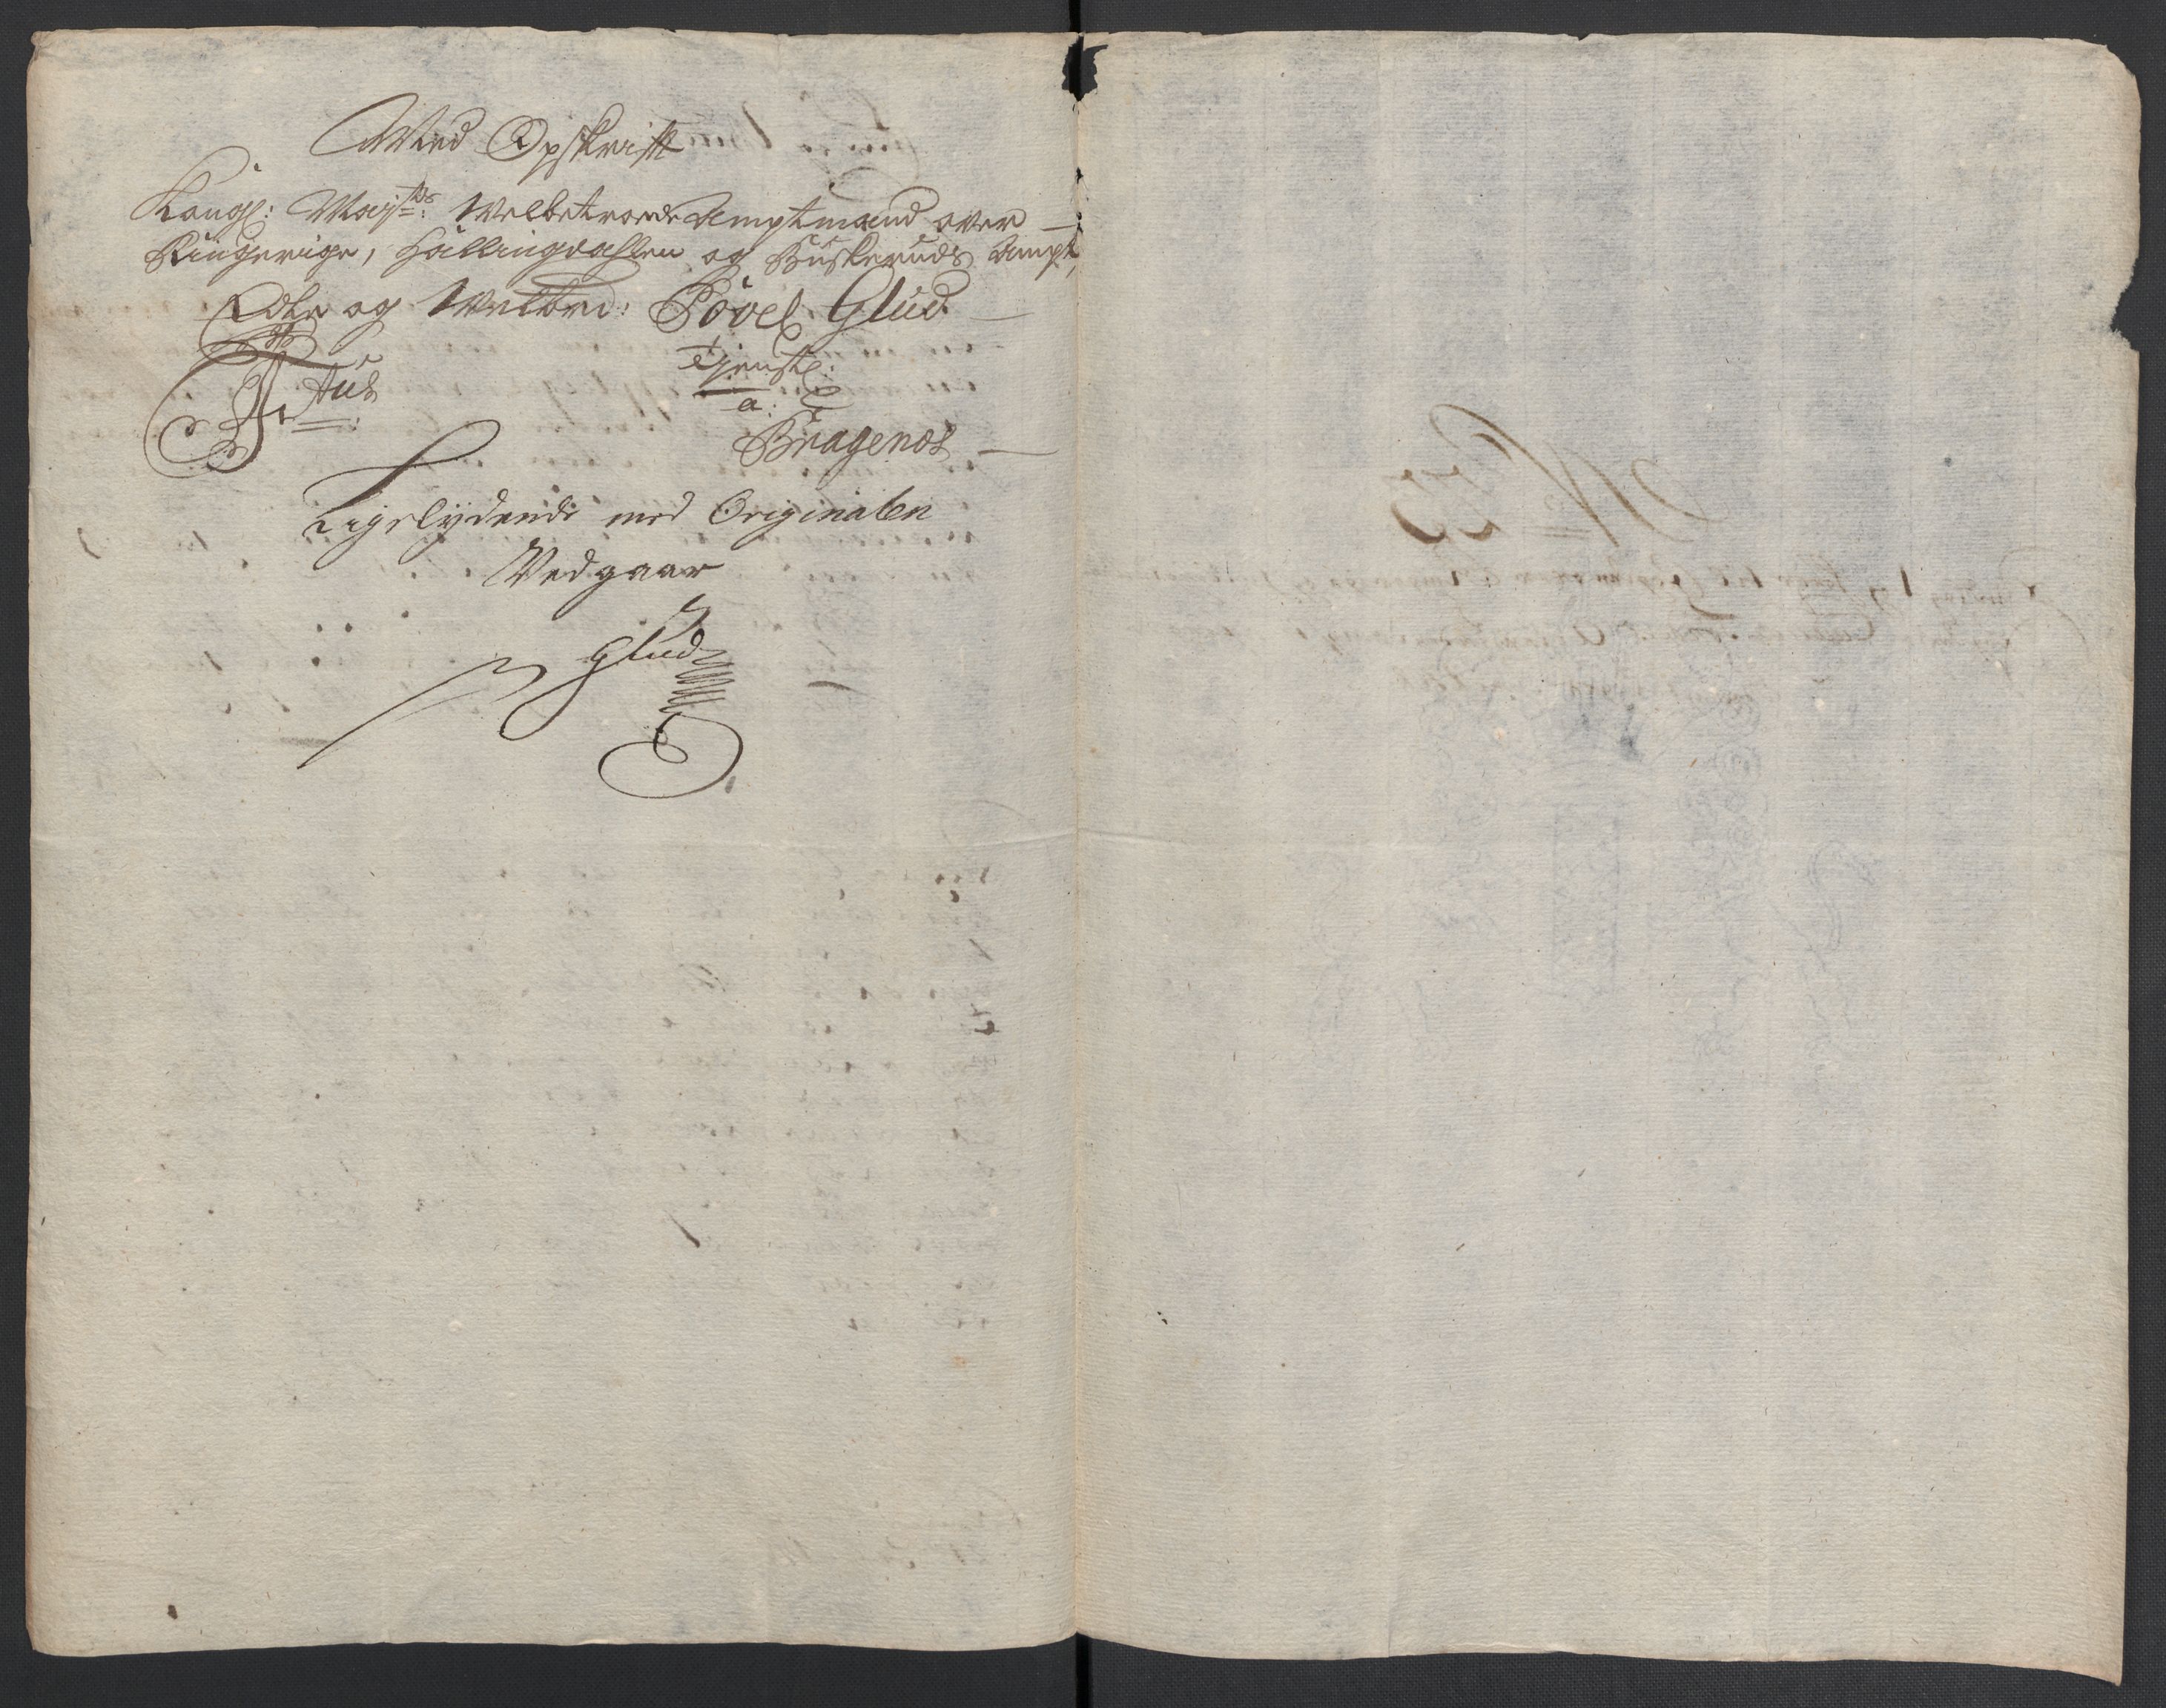 Med Opskrift
Kongl: Mayts: Welbetroede Amptmand over
Ringerige, Hallingdahlen og Buskeruds Ampt,
Edle og Welbrd: Povel Glud
Tjenstl:
a:
Bragenes
Ligelydende med Originalen
Vedgaar
P Glud